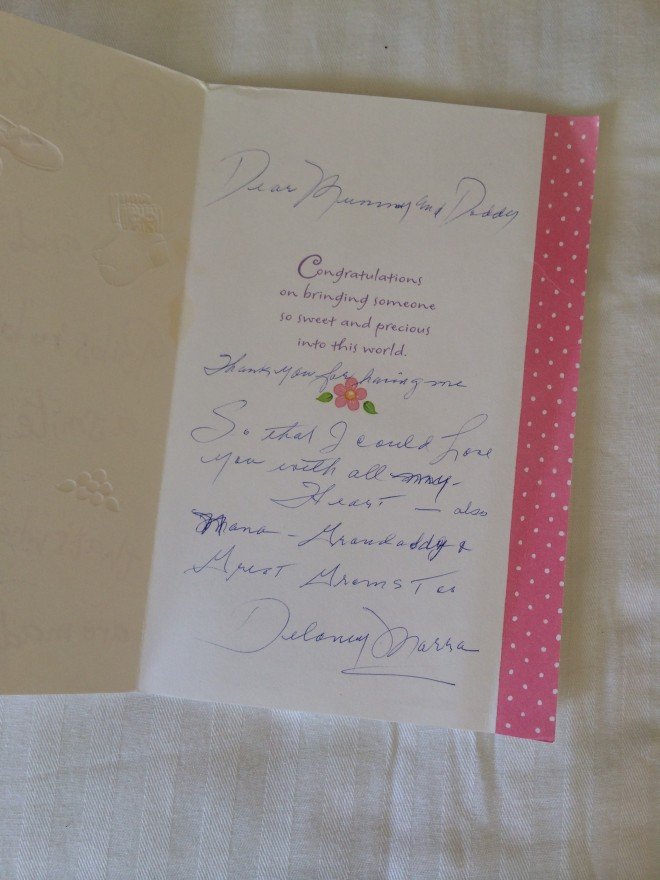 Dear Mummy and Daddy
Congratulations
on bringing someone
so sweet and precious
into this world.
Thank you for having me
So that I could Love
you with all my
Heart — also
Nana - Grandaddy &
Great Grams Too
Delaney Marra